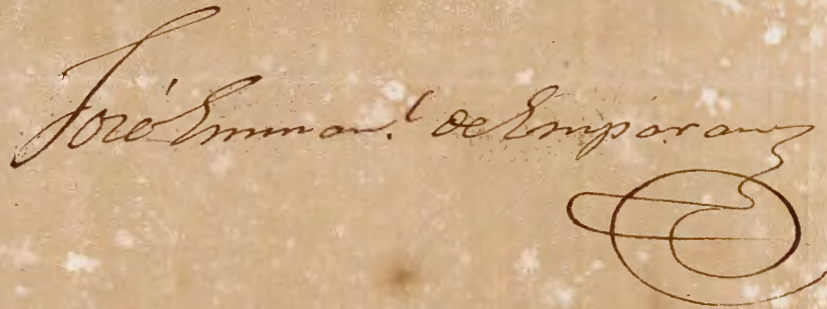 José Emman.l de Emparan